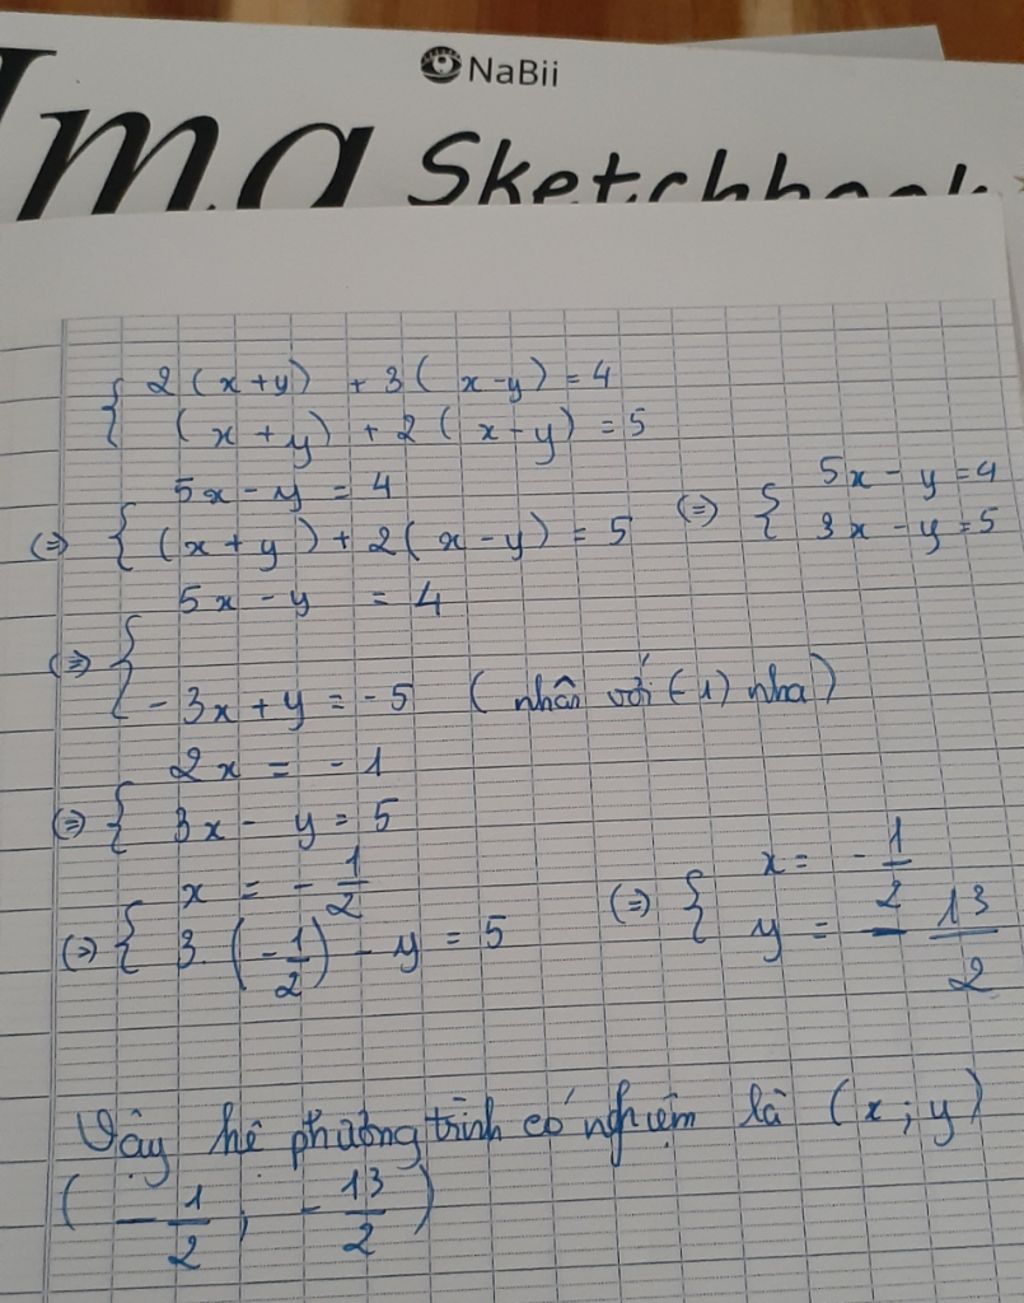 NaBii
Ima Sketchbook
{ 2(x+y) + 3(x-y) = 4
(x+y) + 2(x-y) = 5
5x - y = 4
(=) { (x+y) + 2(x-y) = 5 (=) { 5x - y = 4
3x - y = 5
5x - y = 4
(=) {
-3x + y = -5 (nhân với (-1) nha)
2x = -1
(=) { 3x - y = 5
x = -1/2
(=) { 3.(-1/2) - y = 5 (=) { x = -1/2
y = -13/2
Vậy hệ phương trình có nghiệm là (x; y)
(-1/2; -13/2)